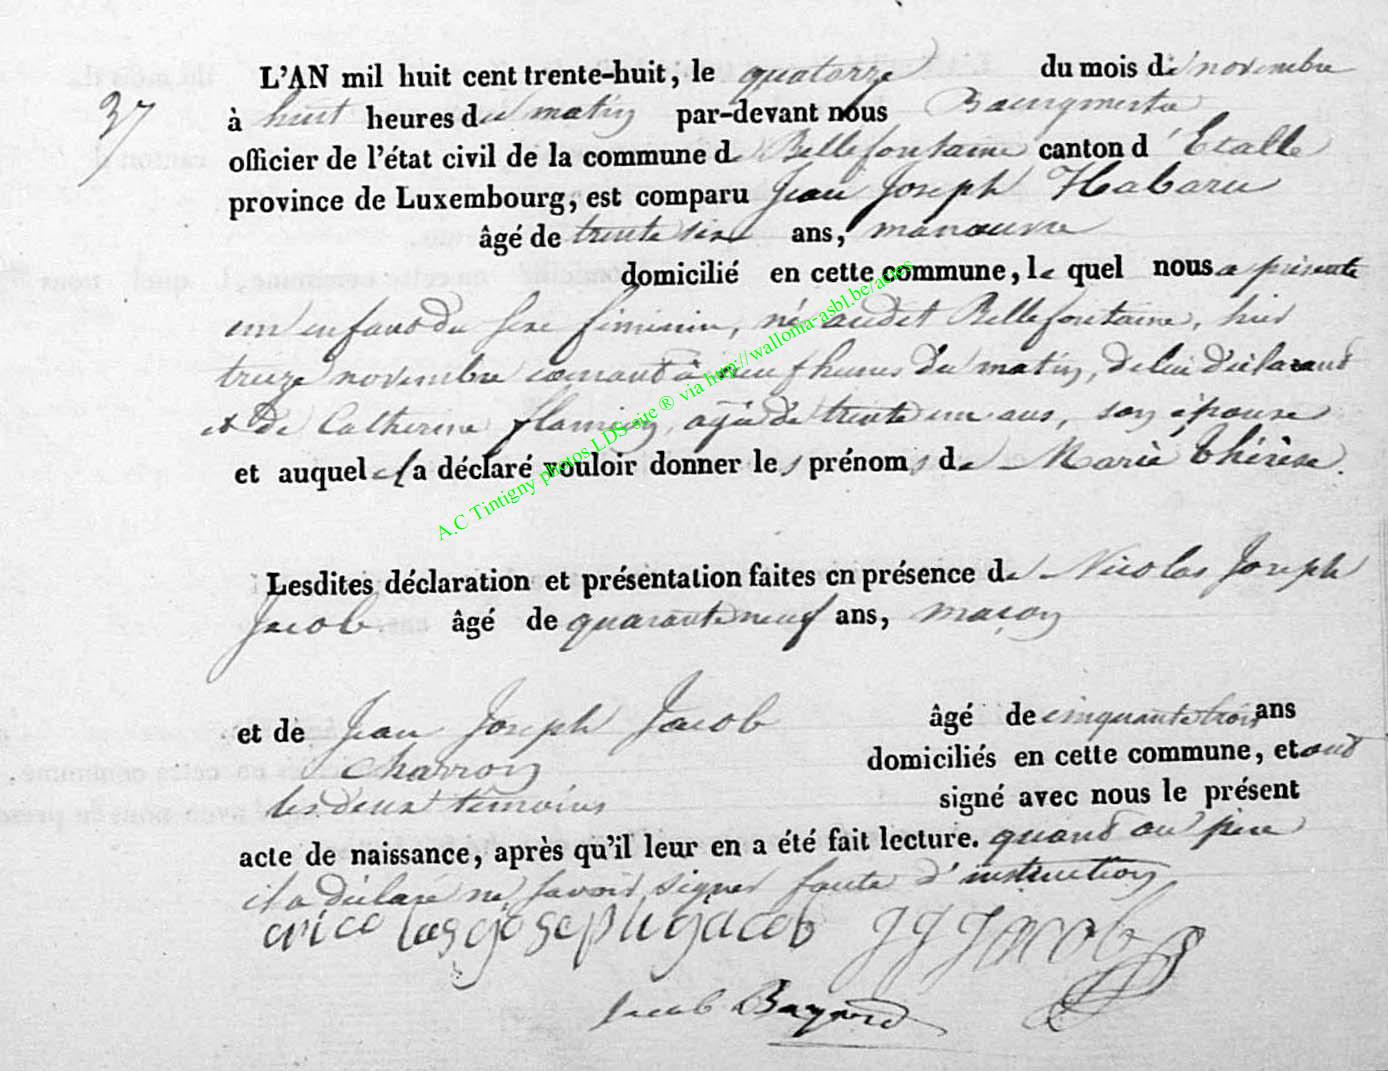 37
L'AN mil huit cent trente-huit, le quatorze du mois de novembre
à huit heures du matin par-devant nous Bourgmestre
officier de l'état civil de la commune de Bellefontaine canton d'Etalle
province de Luxembourg, est comparu Jean Joseph Habaru
âgé de trente six ans, manœuvre
domicilié en cette commune, le quel nous a présenté
un enfant du sexe féminin, né audit Bellefontaine, hier
treize novembre courant à neuf heures du matin, de lui déclarant
et de Catherine Flamion, agée de trente un ans, son épouse
et auquel il a déclaré vouloir donner les prénoms de Marie Thérèse.
A.C Tintigny photos LDS site ® via http://wallonia-asbl.be/actes
Lesdites déclaration et présentation faites en présence de Nicolas Joseph
Jacob âgé de quarante neuf ans, maçon
et de Jean Joseph Jacob âgé de cinquante trois ans
charron domiciliés en cette commune, et ont
les deux témoins signé avec nous le présent
acte de naissance, après qu'il leur en a été fait lecture. quant au père
il a déclaré ne savoir signer faute d'instruction
nicolas joseph jacob JJ Jacob
Jacob Bayard